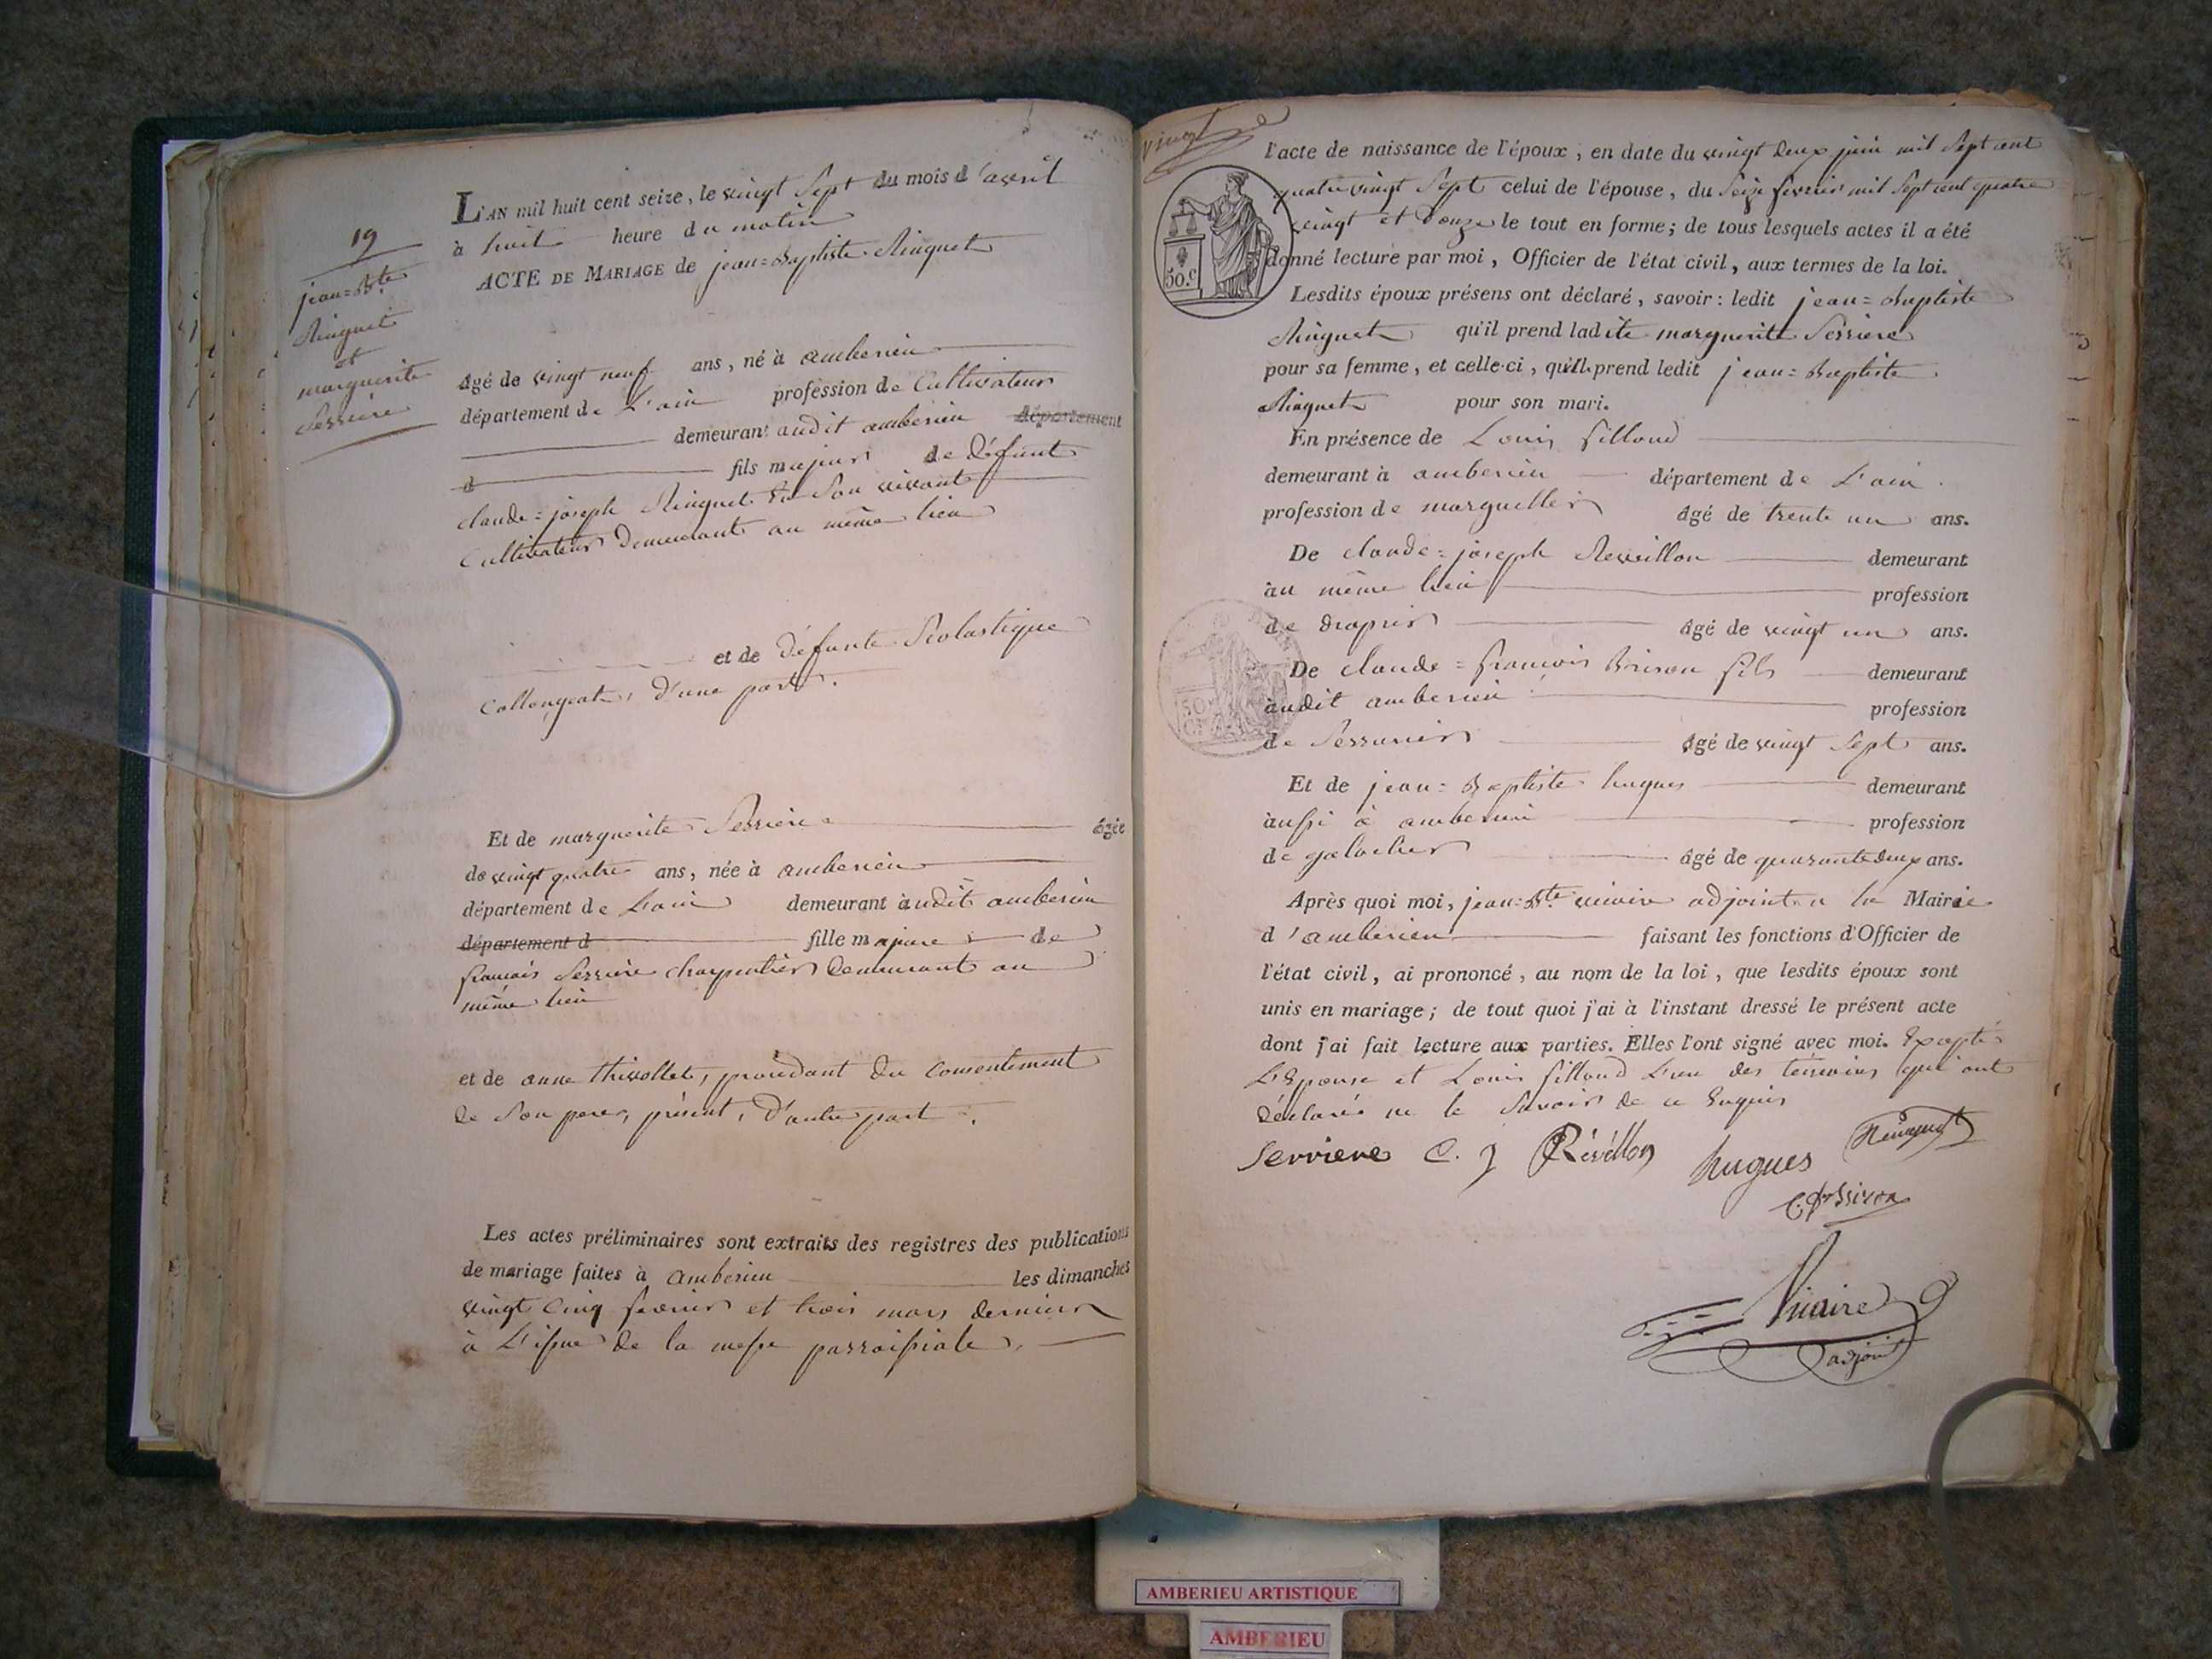 19
jean=Bte
Ringuet
et
marguerite
Serriere
L'AN mil huit cent seize, le vingt Sept du mois d'avril
à huit heure du matin
ACTE DE MARIAGE de jean=Baptiste Ringuet
âgé de vingt neuf ans, né à amberieu
département de L'ain profession de Cultivateur
demeurant audit amberieu département
d fils majeur de défunt
claude=joseph Ringuet en Son vivant
Cultivateur Demeurant au même lieu
et de défunte Scolastique
Collongeat, d'une part.
Et de marguerite Serriere âgée
de vingt quatre ans, née à amberieu
département de L'ain demeurant audit amberieu
département d fille majeure de
francois Serriere charpentier Demeurant au
même lieu
et de anne thivollet, procédant du Consentement
de Son pere, présent, D'autre part.
Les actes préliminaires sont extraits des registres des publications
de mariage faites à amberieu les dimanches
vingt Cinq fevrier et trois mars dernier
à L'issue de la messe parroissiale.
vingt
l'acte de naissance de l'époux, en date du vingt deux juin mil Sept cent
quatre vingt Sept celui de l'épouse, du Seize fevrier mil Sept cent quatre
vingt et Douze le tout en forme; de tous lesquels actes il a été
donné lecture par moi, Officier de l'état civil, aux termes de la loi.
50.c
Lesdits époux présens ont déclaré, savoir: ledit jean=Baptiste
Ringuet qu'il prend ladite marguerite Serriere
pour sa femme, et celle-ci, qu'il prend ledit jean=Baptiste
Ringuet pour son mari.
En présence de Louis filloud
demeurant à amberieu département de L'ain.
profession de marguellier âgé de trente un ans.
De claude=joseph Reveillon demeurant
au même lieu profession
de drapier âgé de vingt un ans.
De claude=francois Brison fils demeurant
audit amberieu profession
50
C.
de Serrurier âgé de vingt Sept ans.
Et de jean=Baptiste hugues demeurant
aussi à amberieu profession
de galocher âgé de quarante deux ans.
Après quoi moi, jean=Bte vicaire adjoint a la Mairie
d'amberieu faisant les fonctions d'Officier de
l'état civil, ai prononcé, au nom de la loi, que lesdits époux sont
unis en mariage; de tout quoi j'ai à l'instant dressé le présent acte
dont j'ai fait lecture aux parties. Elles l'ont signé avec moi. Excepté
L'Epouse et Louis filloud L'un des témoins qui ont
déclarés ne le Savoir de ce Enquis
Serriere C. J Révéllon hugues Reinguet
C.f Brison
Vicaire
adjoint
AMBERIEU ARTISTIQUE
AMBERIEU